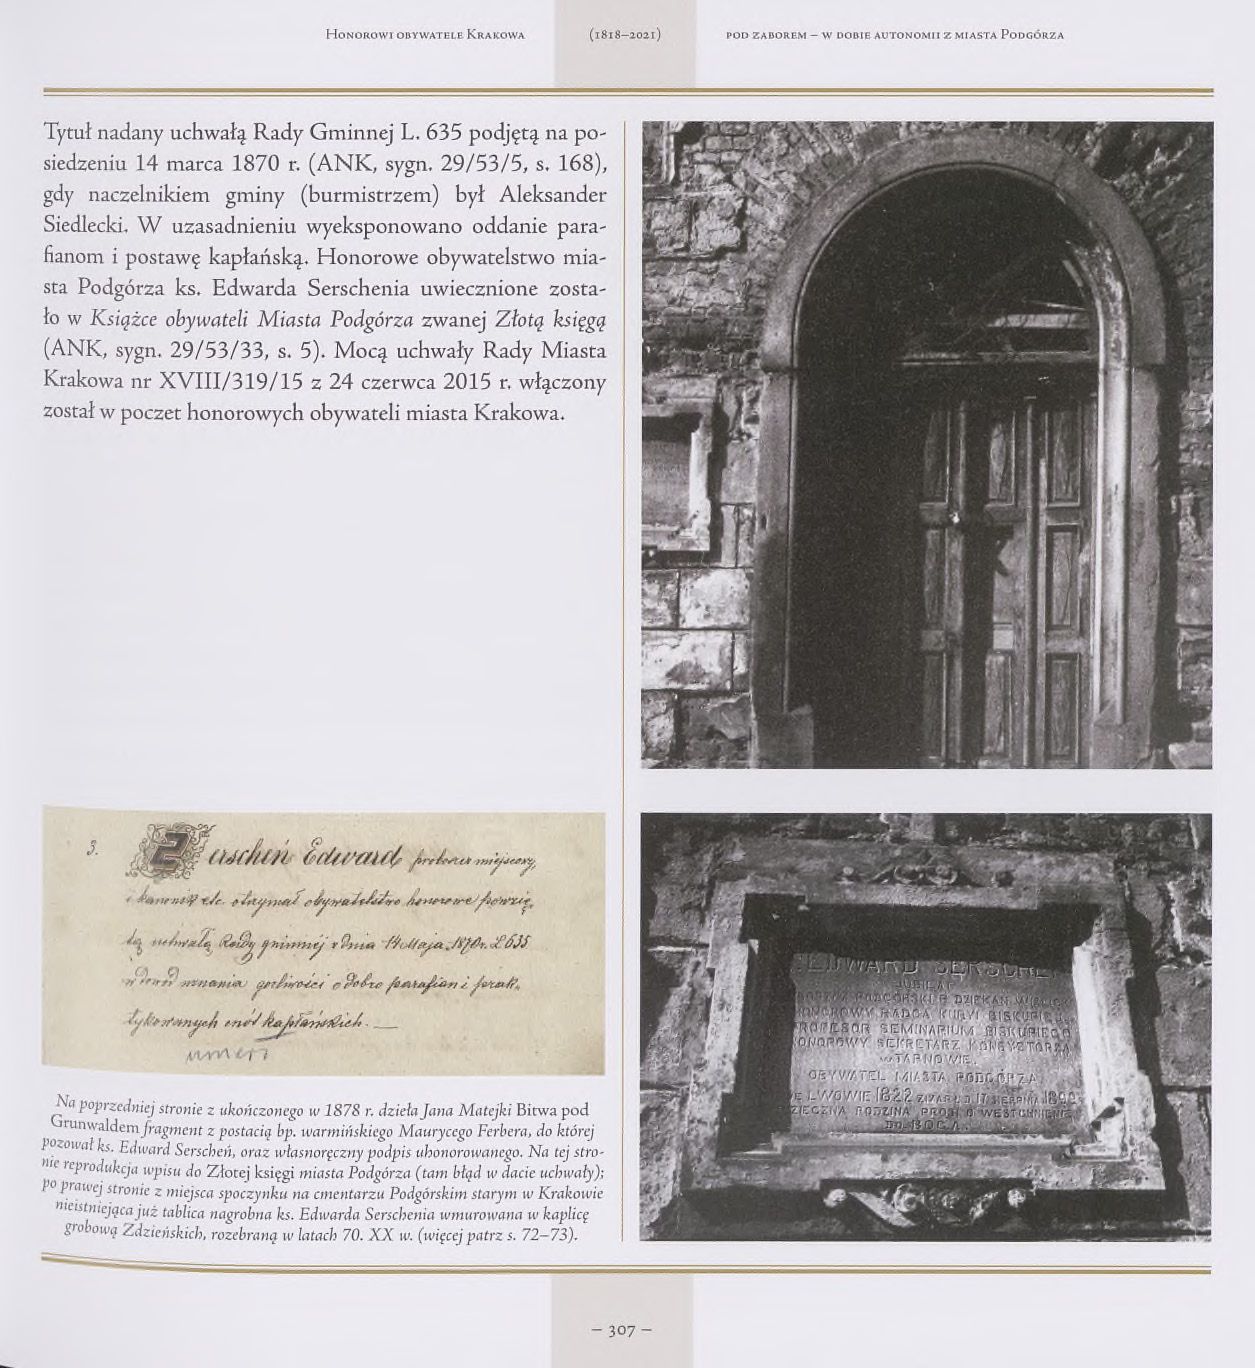 Honorowi obywatele Krakowa (1818–2021) pod zaborem – w dobie autonomii z miasta Podgórza
Tytuł nadany uchwałą Rady Gminnej L. 635 podjętą na po-
siedzeniu 14 marca 1870 r. (ANK, sygn. 29/53/5, s. 168),
gdy naczelnikiem gminy (burmistrzem) był Aleksander
Siedlecki. W uzasadnieniu wyeksponowano oddanie para-
fianom i postawę kapłańską. Honorowe obywatelstwo mia-
sta Podgórza ks. Edwarda Serschenia uwiecznione zosta-
ło w Książce obywateli Miasta Podgórza zwanej Złotą księgą
(ANK, sygn. 29/53/33, s. 5). Mocą uchwały Rady Miasta
Krakowa nr XVIII/319/15 z 24 czerwca 2015 r. włączony
został w poczet honorowych obywateli miasta Krakowa.
3. Zerscheń Edward proboszcz miejscowy,
i kanonik etc. otrzymał obywatelstwo honorowe powzię-
tą uchwałą Rady gminnéj z dnia 14 Maja 1870 r. L 635
w dowód uznania gorliwości o dobro parafian i prak-
tykowanych cnót kapłańskich. —
umarł
Na poprzedniej stronie z ukończonego w 1878 r. dzieła Jana Matejki Bitwa pod
Grunwaldem fragment z postacią bp. warmińskiego Maurycego Ferbera, do której
pozował ks. Edward Serscheń, oraz własnoręczny podpis uhonorowanego. Na tej stro-
nie reprodukcja wpisu do Złotej księgi miasta Podgórza (tam błąd w dacie uchwały);
po prawej stronie z miejsca spoczynku na cmentarzu Podgórskim starym w Krakowie
nieistniejąca już tablica nagrobna ks. Edwarda Serschenia wmurowana w kaplicę
grobową Zdzieńskich, rozebraną w latach 70. XX w. (więcej patrz s. 72–73).
EDWARD SERSCHEŃ
JUBILAT
PODGÓRSKI B. DZIEKAN WIELIC
HONOROWY RADCA KURYI BISKUPIEJ
PROFESOR SEMINARIUM BISKUPIEGO
HONOROWY SEKRETARZ KONSYZTORZA
W TARNOWIE.
OBYWATEL MIASTA PODGÓRZA
WE LWOWIE 1822 ZMARŁ D 17 SIERPNIA
RODZINA PROSI O WESTCHNIENIE
DO BOGA.
– 307 –